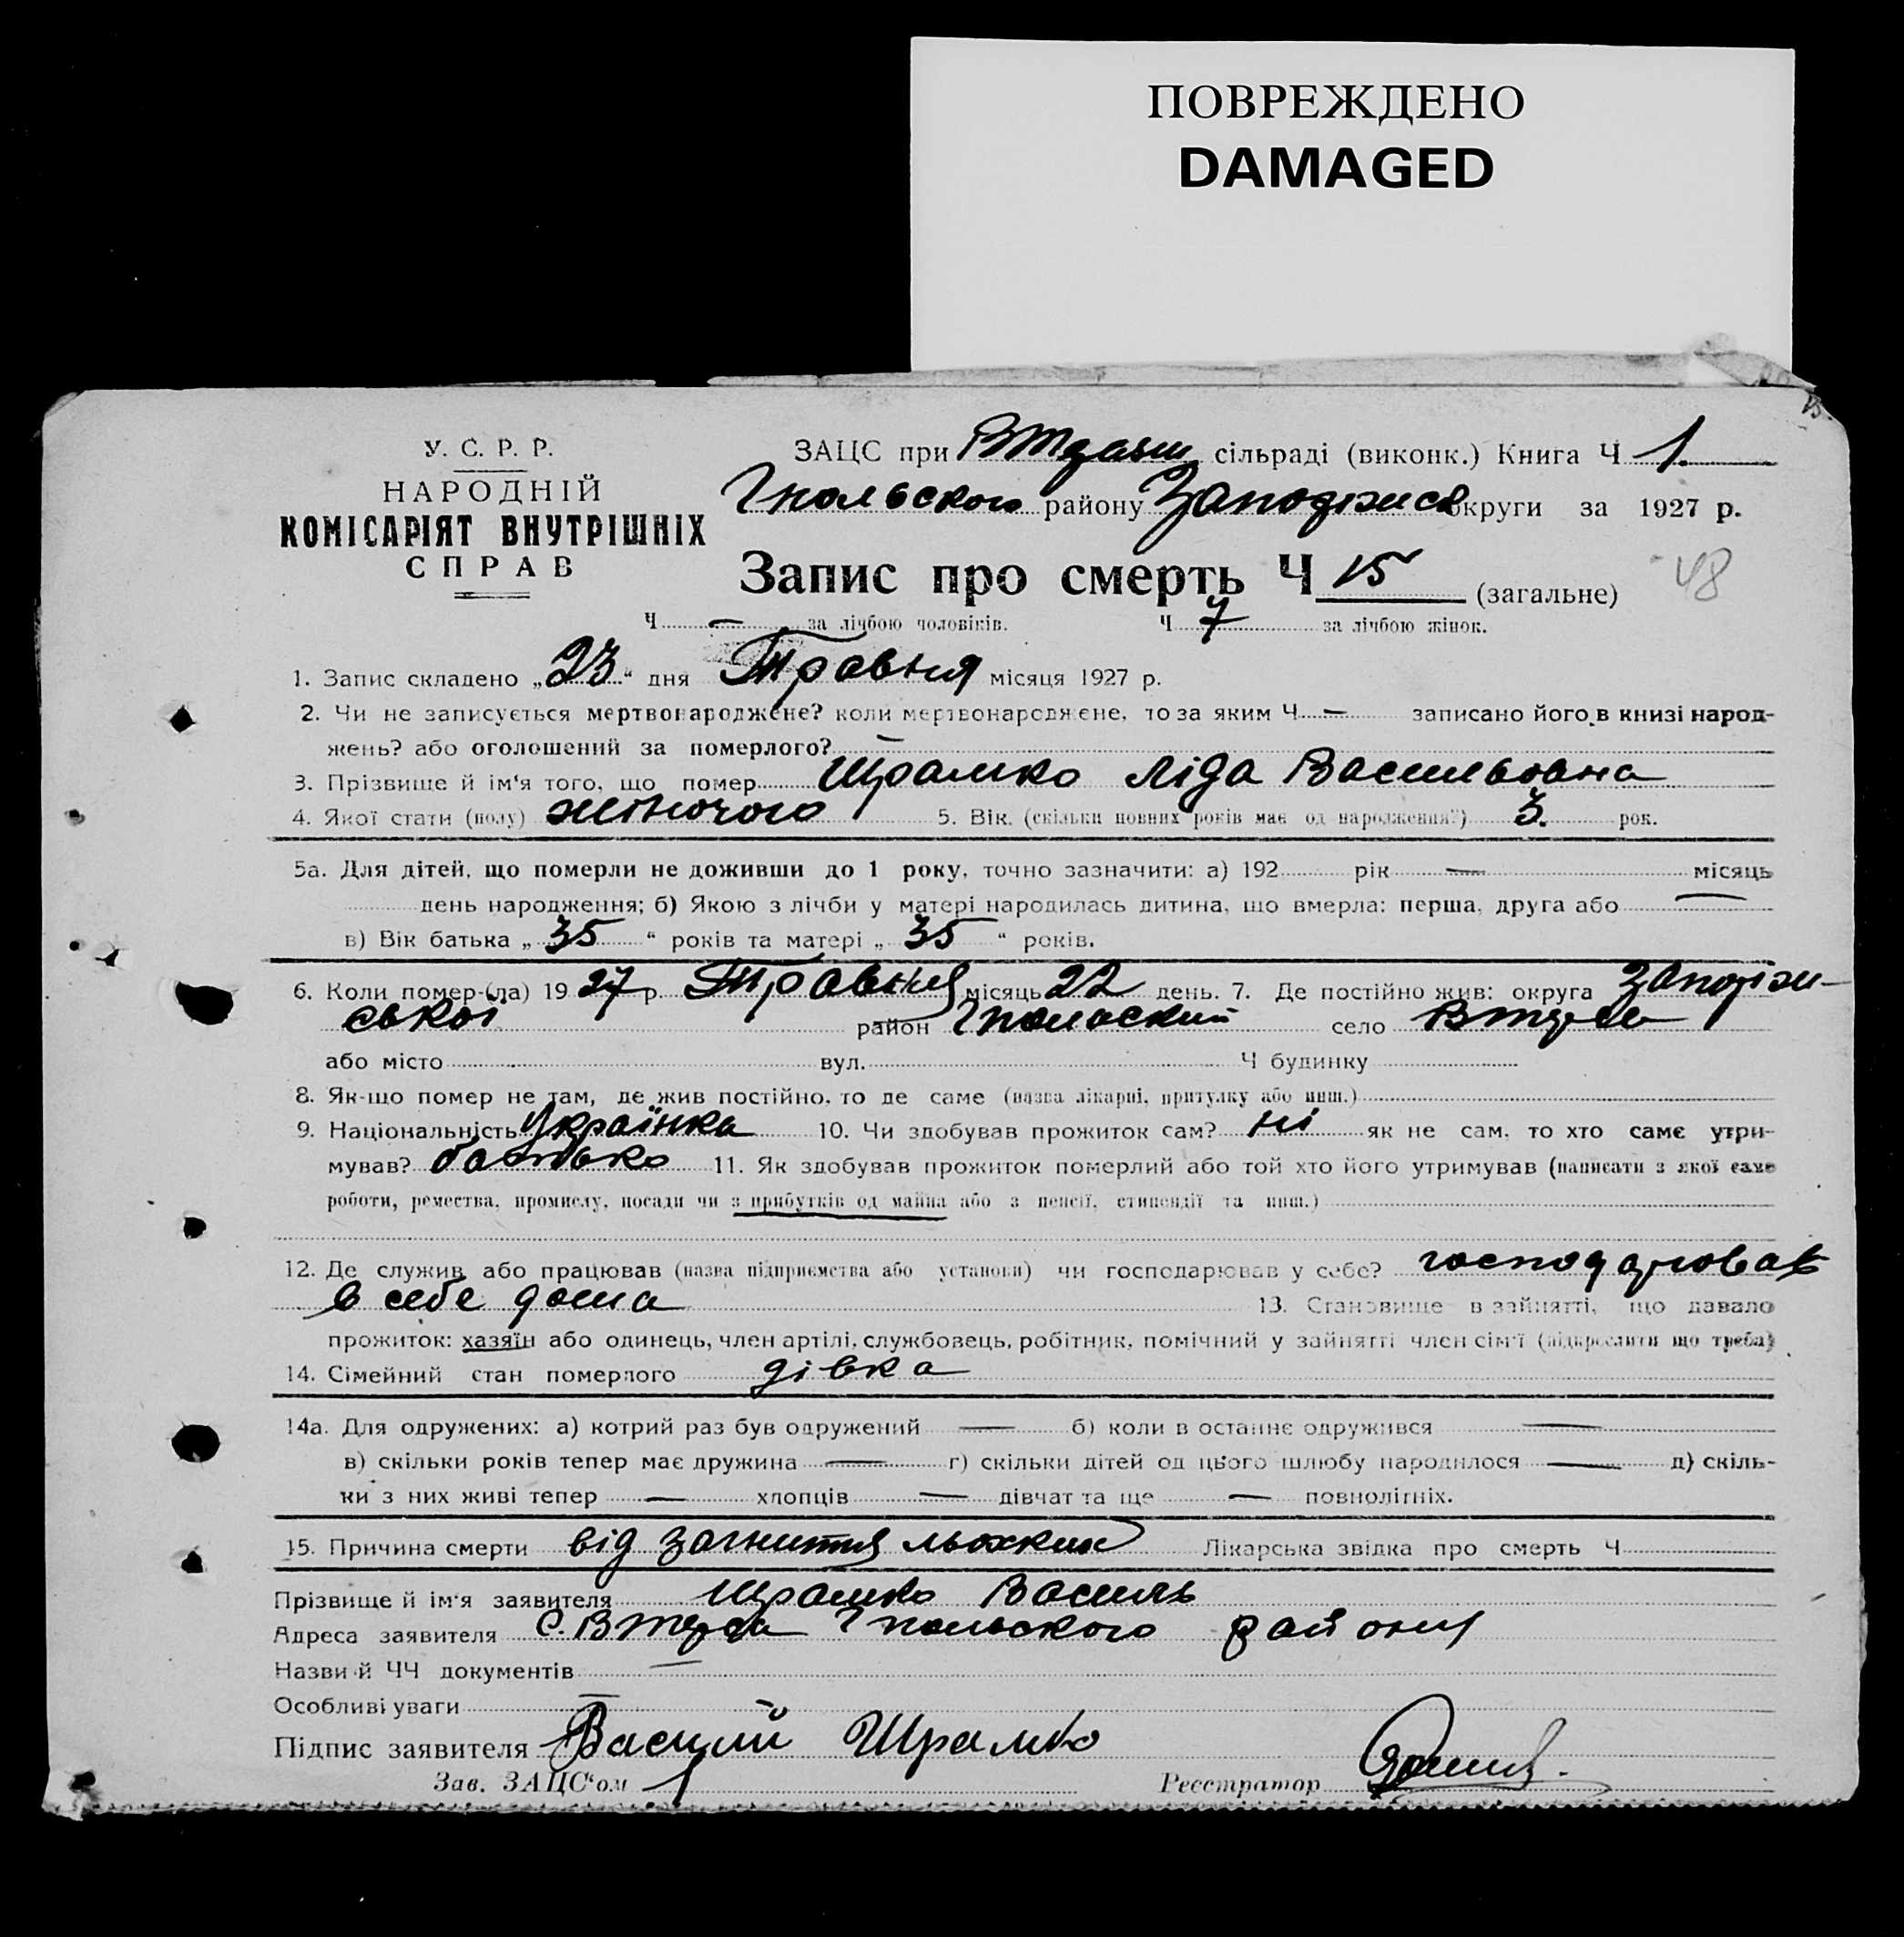 ПОВРЕЖДЕНО
DAMAGED
У. С. Р. Р.
НАРОДНІЙ
КОМІСАРІЯТ ВНУТРІШНІХ
СПРАВ
ЗАЦС при сільраді (виконк.) Книга Ч 1.
Гпольського району Запоріжськ округи за 1927 р.
Запис про смерть Ч 15 (загальне) 48
Ч — за лічбою чоловіків. Ч 7 за лічбою жінок.
1. Запис складено „23“ дня Травня місяця 1927 р.
2. Чи не записується мертвонароджене? коли мертвонароджене, то за яким Ч — записано його в книзі народ-
жень? або оголошений за померлого? —
3. Прізвище й ім‘я того, що помер Шрамко Ліда Васильовна
4. Якої стати (полу) жіночого 5. Вік (скільки повних років має од народження?) 3. рок.
5а. Для дітей, що померли не доживши до 1 року, точно зазначити: а) 192 рік — місяць
день народження; б) Якою з лічби у матері народилась дитина, що вмерла: перша, друга або —
в) Вік батька „35“ років та матері „35“ років.
6. Коли помер-(ла) 1927 р. Травня місяць 22 день. 7. Де постійно жив: округа Запоріж-
ської район Гпольский село
або місто вул. Ч будинку
8. Як-що помер не там, де жив постійно, то де саме (назва лікарні, притулку або инш.)
9. Національність Українка 10. Чи здобував прожиток сам? ні як не сам, то хто саме утри-
мував? батько 11. Як здобував прожиток померлий або той хто його утримував (написати з якої саме
роботи, ремества, промислу, посади чи з прибутків од майна або з пенсії, стипендії та инш.)
12. Де служив або працював (назва підприємства або установи) чи господарював у себе? господарював
в себе дома 13. Становище в зайнятті, що давало
прожиток: хазяїн або одинець, член артілі, службовець, робітник, помічний у зайнятті член сім‘ї (підкреслити що треба)
14. Сімейний стан померлого дівка
14а. Для одружених: а) котрий раз був одружений — б) коли в останнє одружився —
в) скільки років тепер має дружина — г) скільки дітей од цього шлюбу народилося — д) скіль-
ки з них живі тепер — хлопців — дівчат та ще — повнолітніх.
15. Причина смерти від загниття льохких Лікарська звідка про смерть Ч
Прізвище й ім‘я заявителя Шрамко Василь
Адреса заявителя с. Гпольского району
Назви й ЧЧ документів —
Особливі уваги —
Підпис заявителя Василий Шрамко
Зав. ЗАЦС“ом Реєстратор